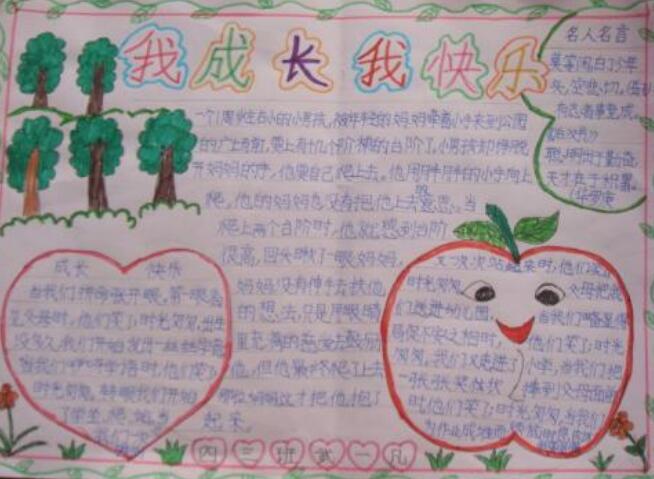 我成长 我快乐
名人名言
莫等闲白了少年
头,空悲切。
聪明在于勤奋,
天才在于积累。
(华罗庚
一个1周岁左右的小男孩,被年轻的妈妈牵着小手来到公园
的广场前,要上有十几个阶梯的台阶了,小男孩却挣脱
开妈妈的手,他要自己爬上去。他用胖胖的小手向上
爬,他的妈妈也没有把他上去的意思。当
爬上两个台阶时,他就感到台阶
很高,回头瞅了一眼妈妈,
妈妈没有伸手去扶他
的想法,只是用眼睛
里充满的慈爱去鼓励
他,但他最终爬上去
妈妈这才把他抱了
起来。
成长 快乐
当我们拼命张开眼,第一眼看
见父母时,他们笑了;时光匆匆,
没多久,我们开始
当我们咿呀学语时,他们笑了;
时光匆匆,转眼我们开始
了学坐、爬、站,当
我们一次
又一次次站起来时,他们
时光匆匆, 父母把我
们送进幼儿园, 当我们略显得
局促不安之相时, 他们笑了;时光
匆匆,我们又走进了小学,当我们把
一张张奖状 捧到父母面前
时,他们笑了;时光匆匆,当我们
为作业
四三班武一凡